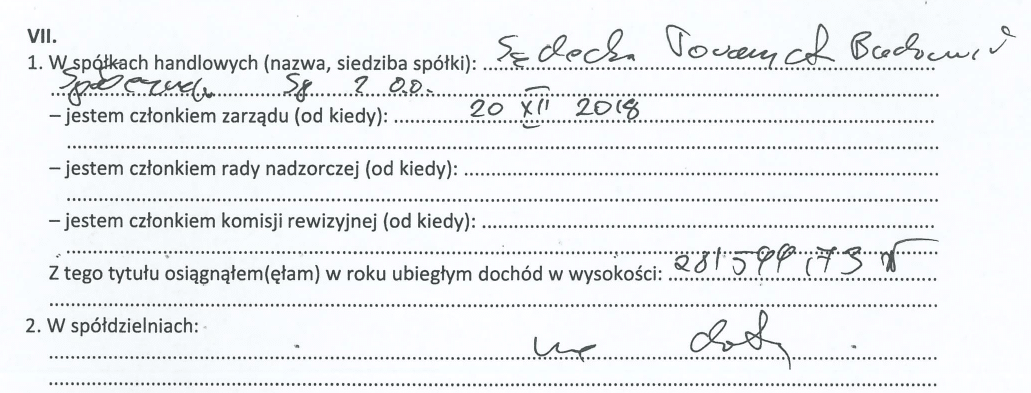 VII.
1. W spółkach handlowych (nazwa, siedziba spółki): Budowni
Sp z o.o.
– jestem członkiem zarządu (od kiedy): 20 XII 2018
– jestem członkiem rady nadzorczej (od kiedy):
– jestem członkiem komisji rewizyjnej (od kiedy):
Z tego tytułu osiągnąłem(ęłam) w roku ubiegłym dochód w wysokości:
2. W spółdzielniach:
nie doty